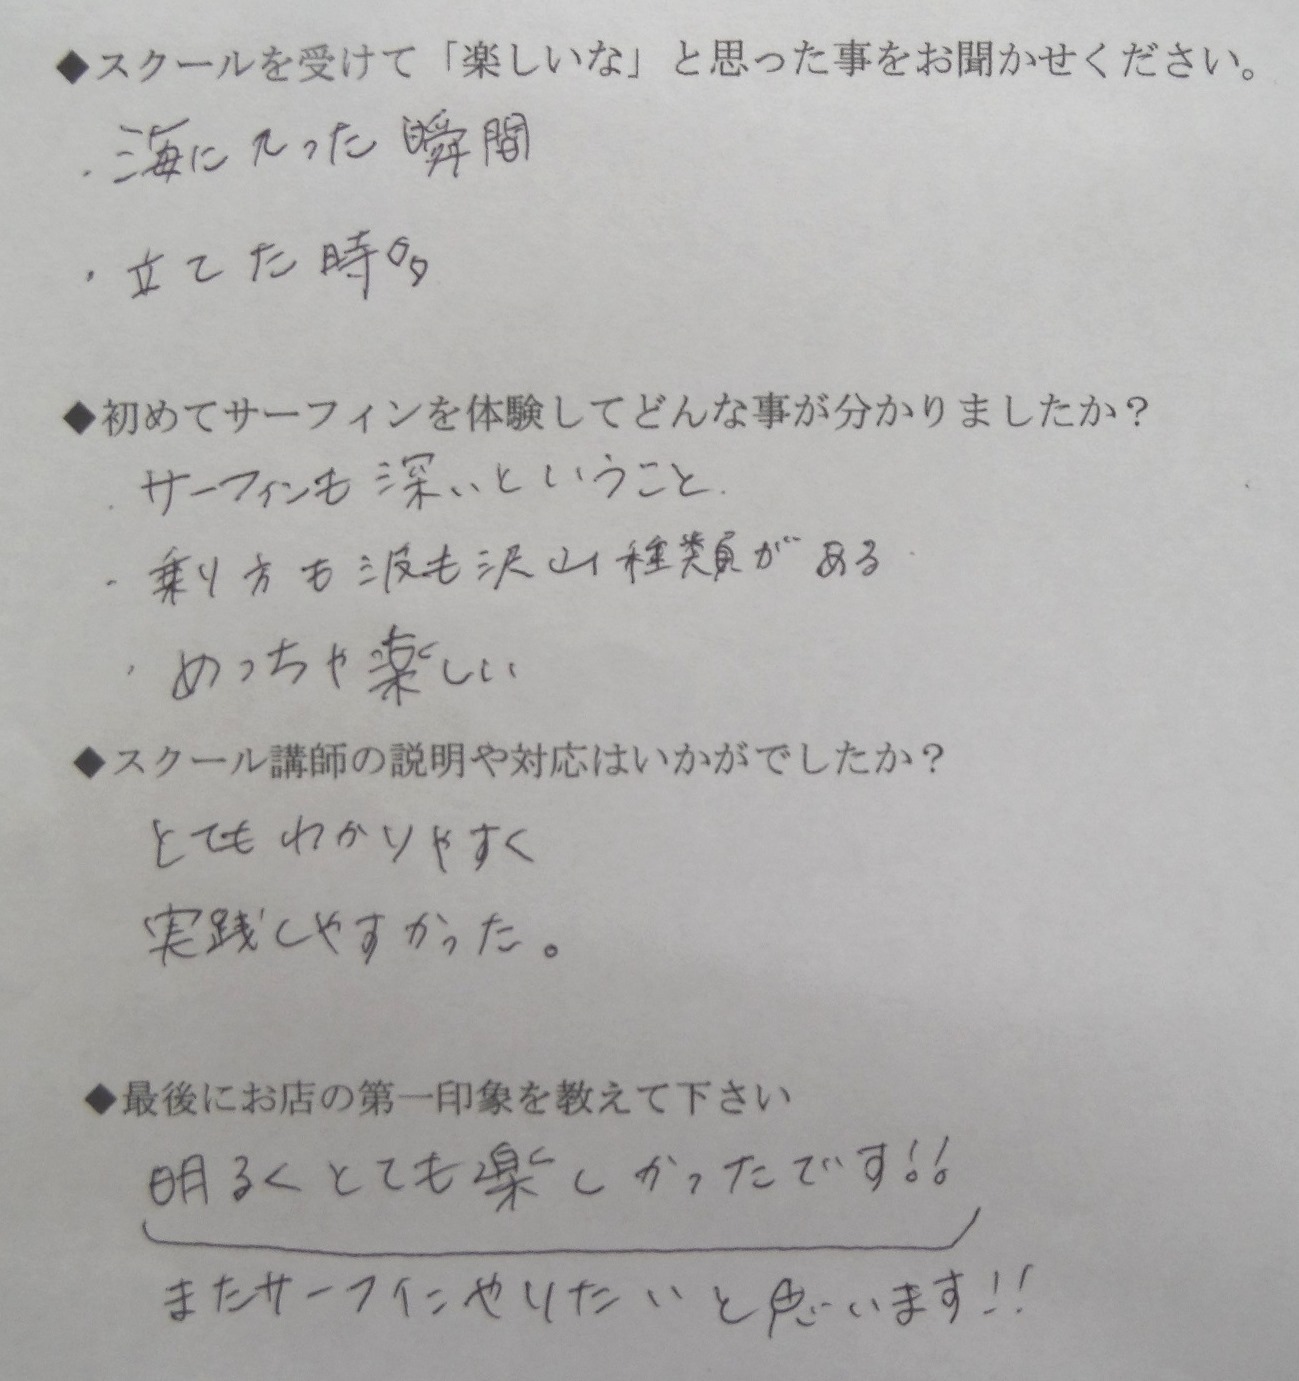 ◆スクールを受けて「楽しいな」と思った事をお聞かせください。
・海に入った瞬間
・立てた時
◆初めてサーフィンを体験してどんな事が分かりましたか？
・サーフィンも深いということ.
・乗り方も波も沢山種類がある
・めっちゃ楽しい
◆スクール講師の説明や対応はいかがでしたか？
とてもわかりやすく
実践しやすかった。
◆最後にお店の第一印象を教えて下さい
明るくとても楽しかったです!!
またサーフィンやりたいと思います!!